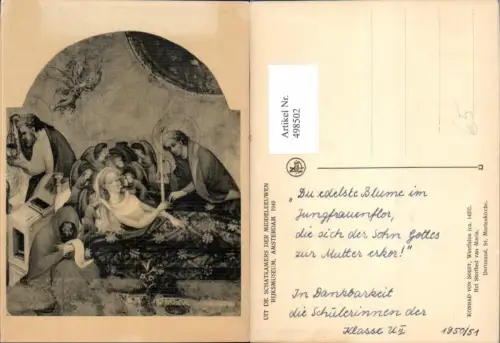 UIT DE SCHATKAMERS DER MIDDELEEUWEN
RIJKSMUSEUM, AMSTERDAM 1949
Artikel Nr.
498502
65
„Du edelste Blume im
Jungfrauenflor,
die sich der Sohn Gottes
zur Mutter erkor!"
In Dankbarkeit
die Schülerinnen der
Klasse U II
1950/51
KONRAD VON SOEST, Westfalen (ca. 1420).
Het Sterfbed van Maria.
Dortmund, St. Marienkirche.